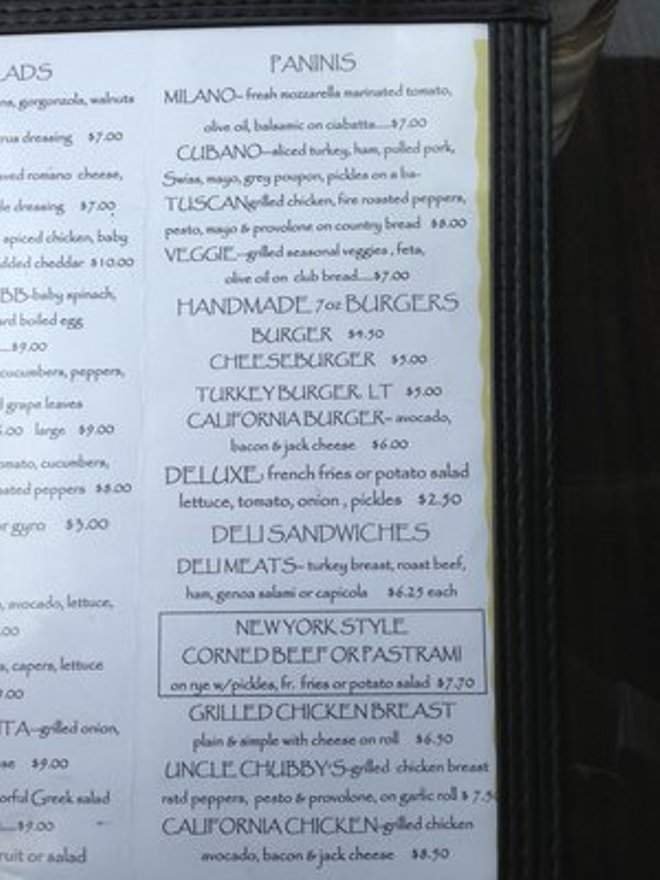 ADS
na, gorgonzola, walnuts
rus dressing $7.00
ved romano cheese,
le dressing $7.00
spiced chicken, baby
dded cheddar $10.00
BB-baby spinach,
ard boiled egg
....$9.00
cucumbers, peppers,
grape leaves
.00 large $9.00
omato, cucumbers,
sated peppers $8.00
or gyro $3.00
, avocado, lettuce,
.00
s, capers, lettuce
.00
TA-grilled onion,
se $9.00
orful Greek salad
....$9.00
ruit or salad
PANINIS
MILANO- fresh mozzarella marinated tomato,
olive oil, balsamic on ciabatta....$7.00
CUBANO-sliced turkey, ham, pulled pork,
Swiss, mayo, grey poupon, pickles on a ba-
TUSCAN-grilled chicken, fire roasted peppers,
pesto, mayo & provolone on country bread $8.00
VEGGIE-grilled seasonal veggies, feta,
olive oil on club bread....$7.00
HANDMADE 7oz BURGERS
BURGER $4.50
CHEESEBURGER $5.00
TURKEY BURGER, LT $5.00
CALIFORNIA BURGER- avocado,
bacon & jack cheese $6.00
DELUXE, french fries or potato salad
lettuce, tomato, onion, pickles $2.50
DELI SANDWICHES
DELI MEATS- turkey breast, roast beef,
ham, genoa salami or capicola $6.25 each
NEW YORK STYLE
CORNED BEEF OR PASTRAMI
on rye w/pickles, fr. fries or potato salad $7.70
GRILLED CHICKEN BREAST
plain & simple with cheese on roll $6.50
UNCLE CHUBBY'S-grilled chicken breast
rstd peppers, pesto & provolone, on garlic roll $7.5
CALIFORNIA CHICKEN-grilled chicken
avocado, bacon & jack cheese $8.50